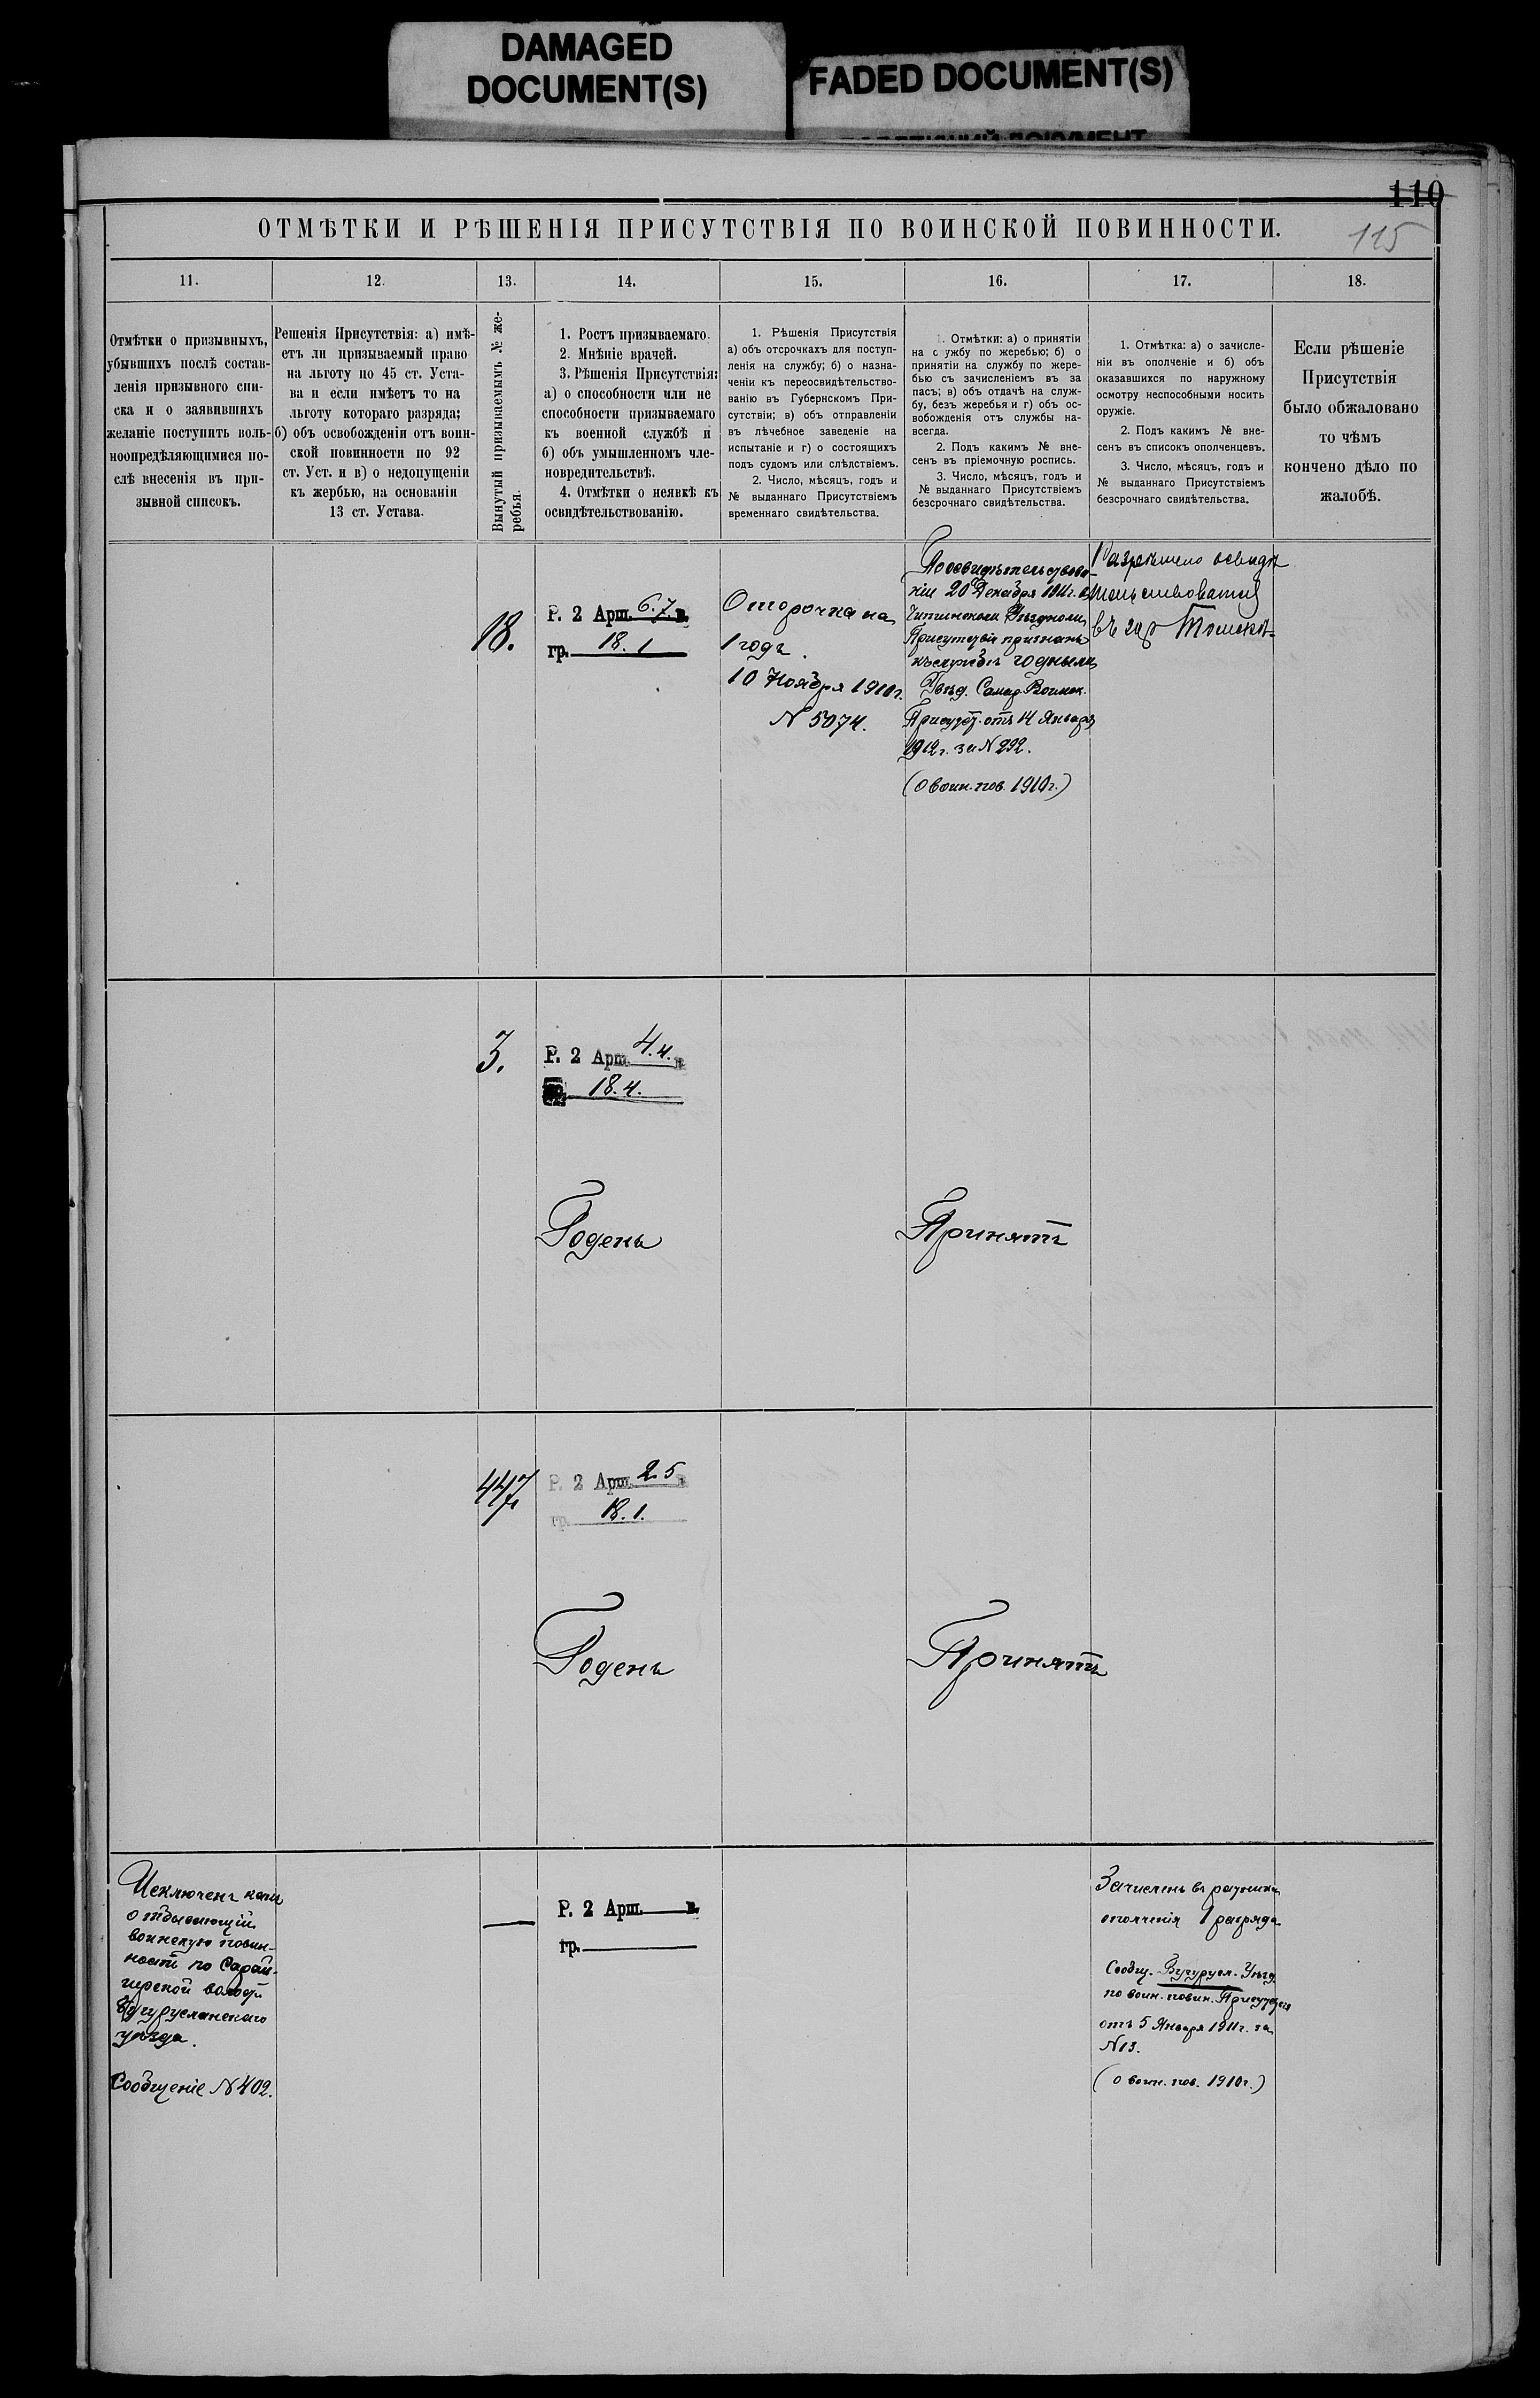 DAMAGED
DOCUMENT(S)
FADED DOCUMENT(S)
110
115
ОТМѢТКИ И РѢШЕНІЯ ПРИСУТСТВІЯ ПО ВОИНСКОЙ ПОВИННОСТИ.
11.
12.
13.
14.
15.
16.
17.
18.
Отмѣтки о призывныхъ,
убывшихъ послѣ состав-
ленія призывного спи-
ска и о заявившихъ
желаніе поступить воль-
ноопредѣляющимися по-
слѣ внесенія въ при-
зывной списокъ.
Решенія Присутствія: а) имѣ-
етъ ли призываемый право
на льготу по 45 ст. Уста-
ва и если имѣетъ то на
льготу котораго разряда;
б) объ освобожденіи отъ воин-
ской повинности по 92
ст. Уст. и в) о недопущеніи
къ жербью, на основаніи
13 ст. Устава.
Вынутый призываемымъ № же-
ребья.
1. Ростъ призываемаго.
2. Мнѣніе врачей.
3. Рѣшенія Присутствія:
а) о способности или не
способности призываемаго
къ военной службѣ и
б) объ умышленномъ чле-
новредительствѣ.
4. Отмѣтки о неявкѣ къ
освидѣтельствованію.
1. Рѣшенія Присутствія
а) объ отсрочкахъ для поступ-
ленія на службу; б) о назна-
ченіи къ переосвидѣтельство-
ванію въ Губернскомъ При-
сутствіи; в) объ отправленіи
въ лѣчебное заведеніе на
испытаніе и г) о состоящихъ
подъ судомъ или слѣдствіемъ.
2. Число, мѣсяцъ, годъ и
№ выданнаго Присутствіемъ
временнаго свидѣтельства.
1. Отмѣтки: а) о принятіи
на службу по жеребью; б) о
принятіи на службу по жере-
бью съ зачисленіемъ въ за
пасъ; в) объ отдачѣ на служ-
бу, безъ жеребья и г) объ ос-
вобожденія отъ службы на-
всегда.
2. Подъ какимъ № вне-
сенъ въ пріемочную роспись.
3. Число, мѣсяцъ, годъ и
№ выданнаго Присутствіемъ
безсрочнаго свидѣтельства.
1. Отмѣтка: а) о зачисле-
ніи въ ополченіе и б) объ
оказавшихся по наружному
осмотру неспособными носить
оружіе.
2. Подъ какимъ № вне-
сенъ въ список ополченцевъ.
3. Число, мѣсяцъ, годъ и
№ выданнаго Присутствіемъ
безсрочнаго свидѣтельства.
Если рѣшеніе
Присутствія
было обжаловано
то чѣмъ
кончено дѣло по
жалобѣ.
18.
Р. 2 Арш. 6.7 в.
гр. 18.1
Отсрочка на
1 годъ.
10 Ноября 1910 г.
№ 5074.
По освидѣтельствова-
ніи 20 Декабря 1911 г. въ
Читинскомъ Уѣздномъ
Присутствіи признанъ
къ службѣ годнымъ
Увѣд. Самар. Воинск.
Присутст. отъ 14 Января
1912 г. за № 292.
(О воин. пов. 1910 г.)
Разрѣшено освидѣ-
тельствоваться
въ гор Томскѣ
3.
Р. 2 Арш. 4.4. в
18.4.
Годенъ
Принятъ
447
Р. 2 Арш. 2.5 в
гр. 18.1.
Годенъ
Принятъ
Исключенъ какъ
отбывающій
воинскую повин-
ность по Сарай-
гирской волости
Бугурусланскаго
уѣзда.
Сообщеніе № 402.
—
Р. 2 Арш. в.
гр.
Зачисленъ въ ратники
ополченія 1 разряда
Сообщ. Бугурусл. Уѣзд.
по воин. повин. Присутствія
отъ 5 Января 1911 г. за
№ 13.
(О воин. пов. 1910 г.)